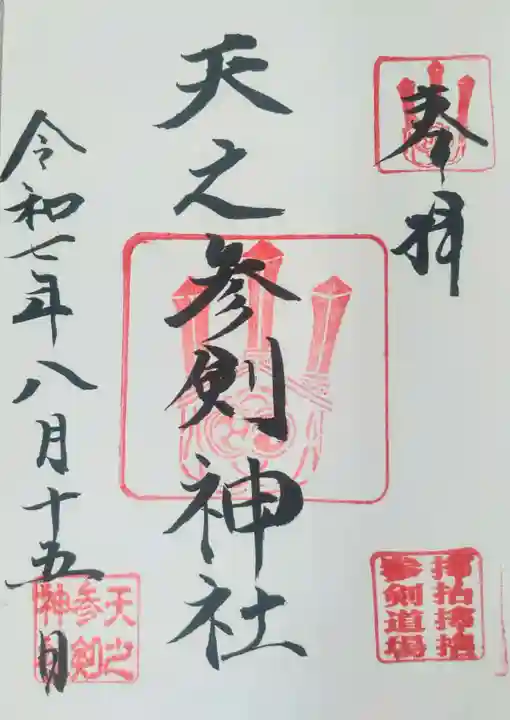 奉拝
天之参剣神社
令和七年八月十五日
参剣道場
天之
参剣
神